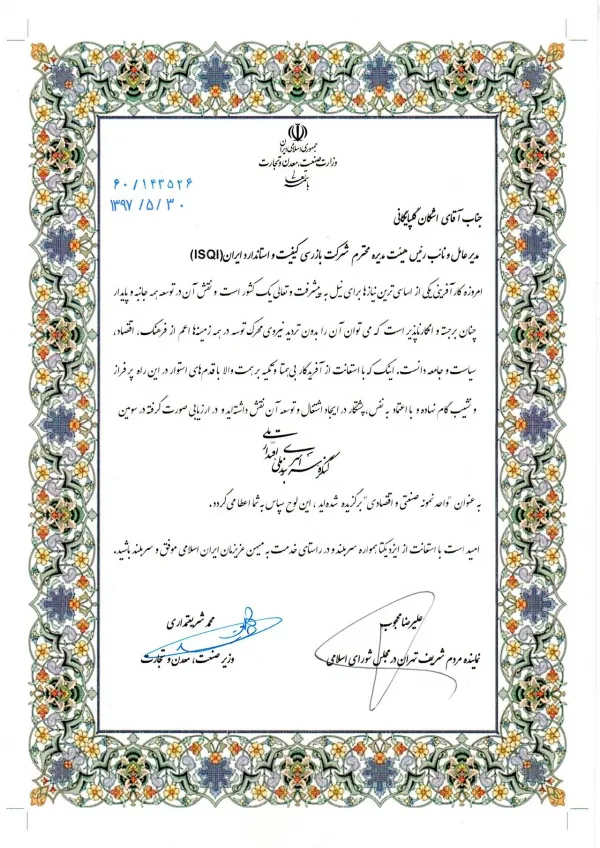 جمهوری اسلامی ایران
وزارت صنعت، معدن و تجارت
بسمه تعالی
۶۰/۱۴۳۵۲۶
۱۳۹۷/۵/۳۰
جناب آقای اشکان گلپایگانی
مدیر عامل و نائب رئیس هیئت مدیره محترم شرکت بازرسی کیفیت و استاندارد ایران(ISQI)
امروزه کار آفرینی یکی از اساسی ترین نیازها برای نیل به پیشرفت و تعالی یک کشور است و نقش آن در توسعه همه جانبه و پایدار
چنان برجسته و انکارناپذیر است که می توان آن را بدون تردید نیروی محرک توسه در همه زمینه‌ها اعم از فرهنگ، اقتصاد،
سیاست و جامعه دانست. اینک که با استعانت از آفریدگار بی‌همتا و تکیه بر همت والا با قدم‌های استوار در این راه پر فراز
و نشیب گام نهاده و با اعتماد به نفس، پشتکار در ایجاد اشتغال و توسعه آن نقش داشته‌اید و در ارزیابی صورت گرفته در سومین
کنگره
ملی
به عنوان "واحد نمونه صنعتی و اقتصادی" برگزیده شده‌اید ، این لوح سپاس به شما اعطا می گردد.
امید است با استعانت از ایزد یکتا همواره سربلند و در راستای خدمت به میهن عزیزمان ایران اسلامی موفق و سربلند باشید.
علیرضا محجوب
نماینده مردم شریف تهران در مجلس شورای اسلامی
محمد شریعتمداری
وزیر صنعت، معدن و تجارت